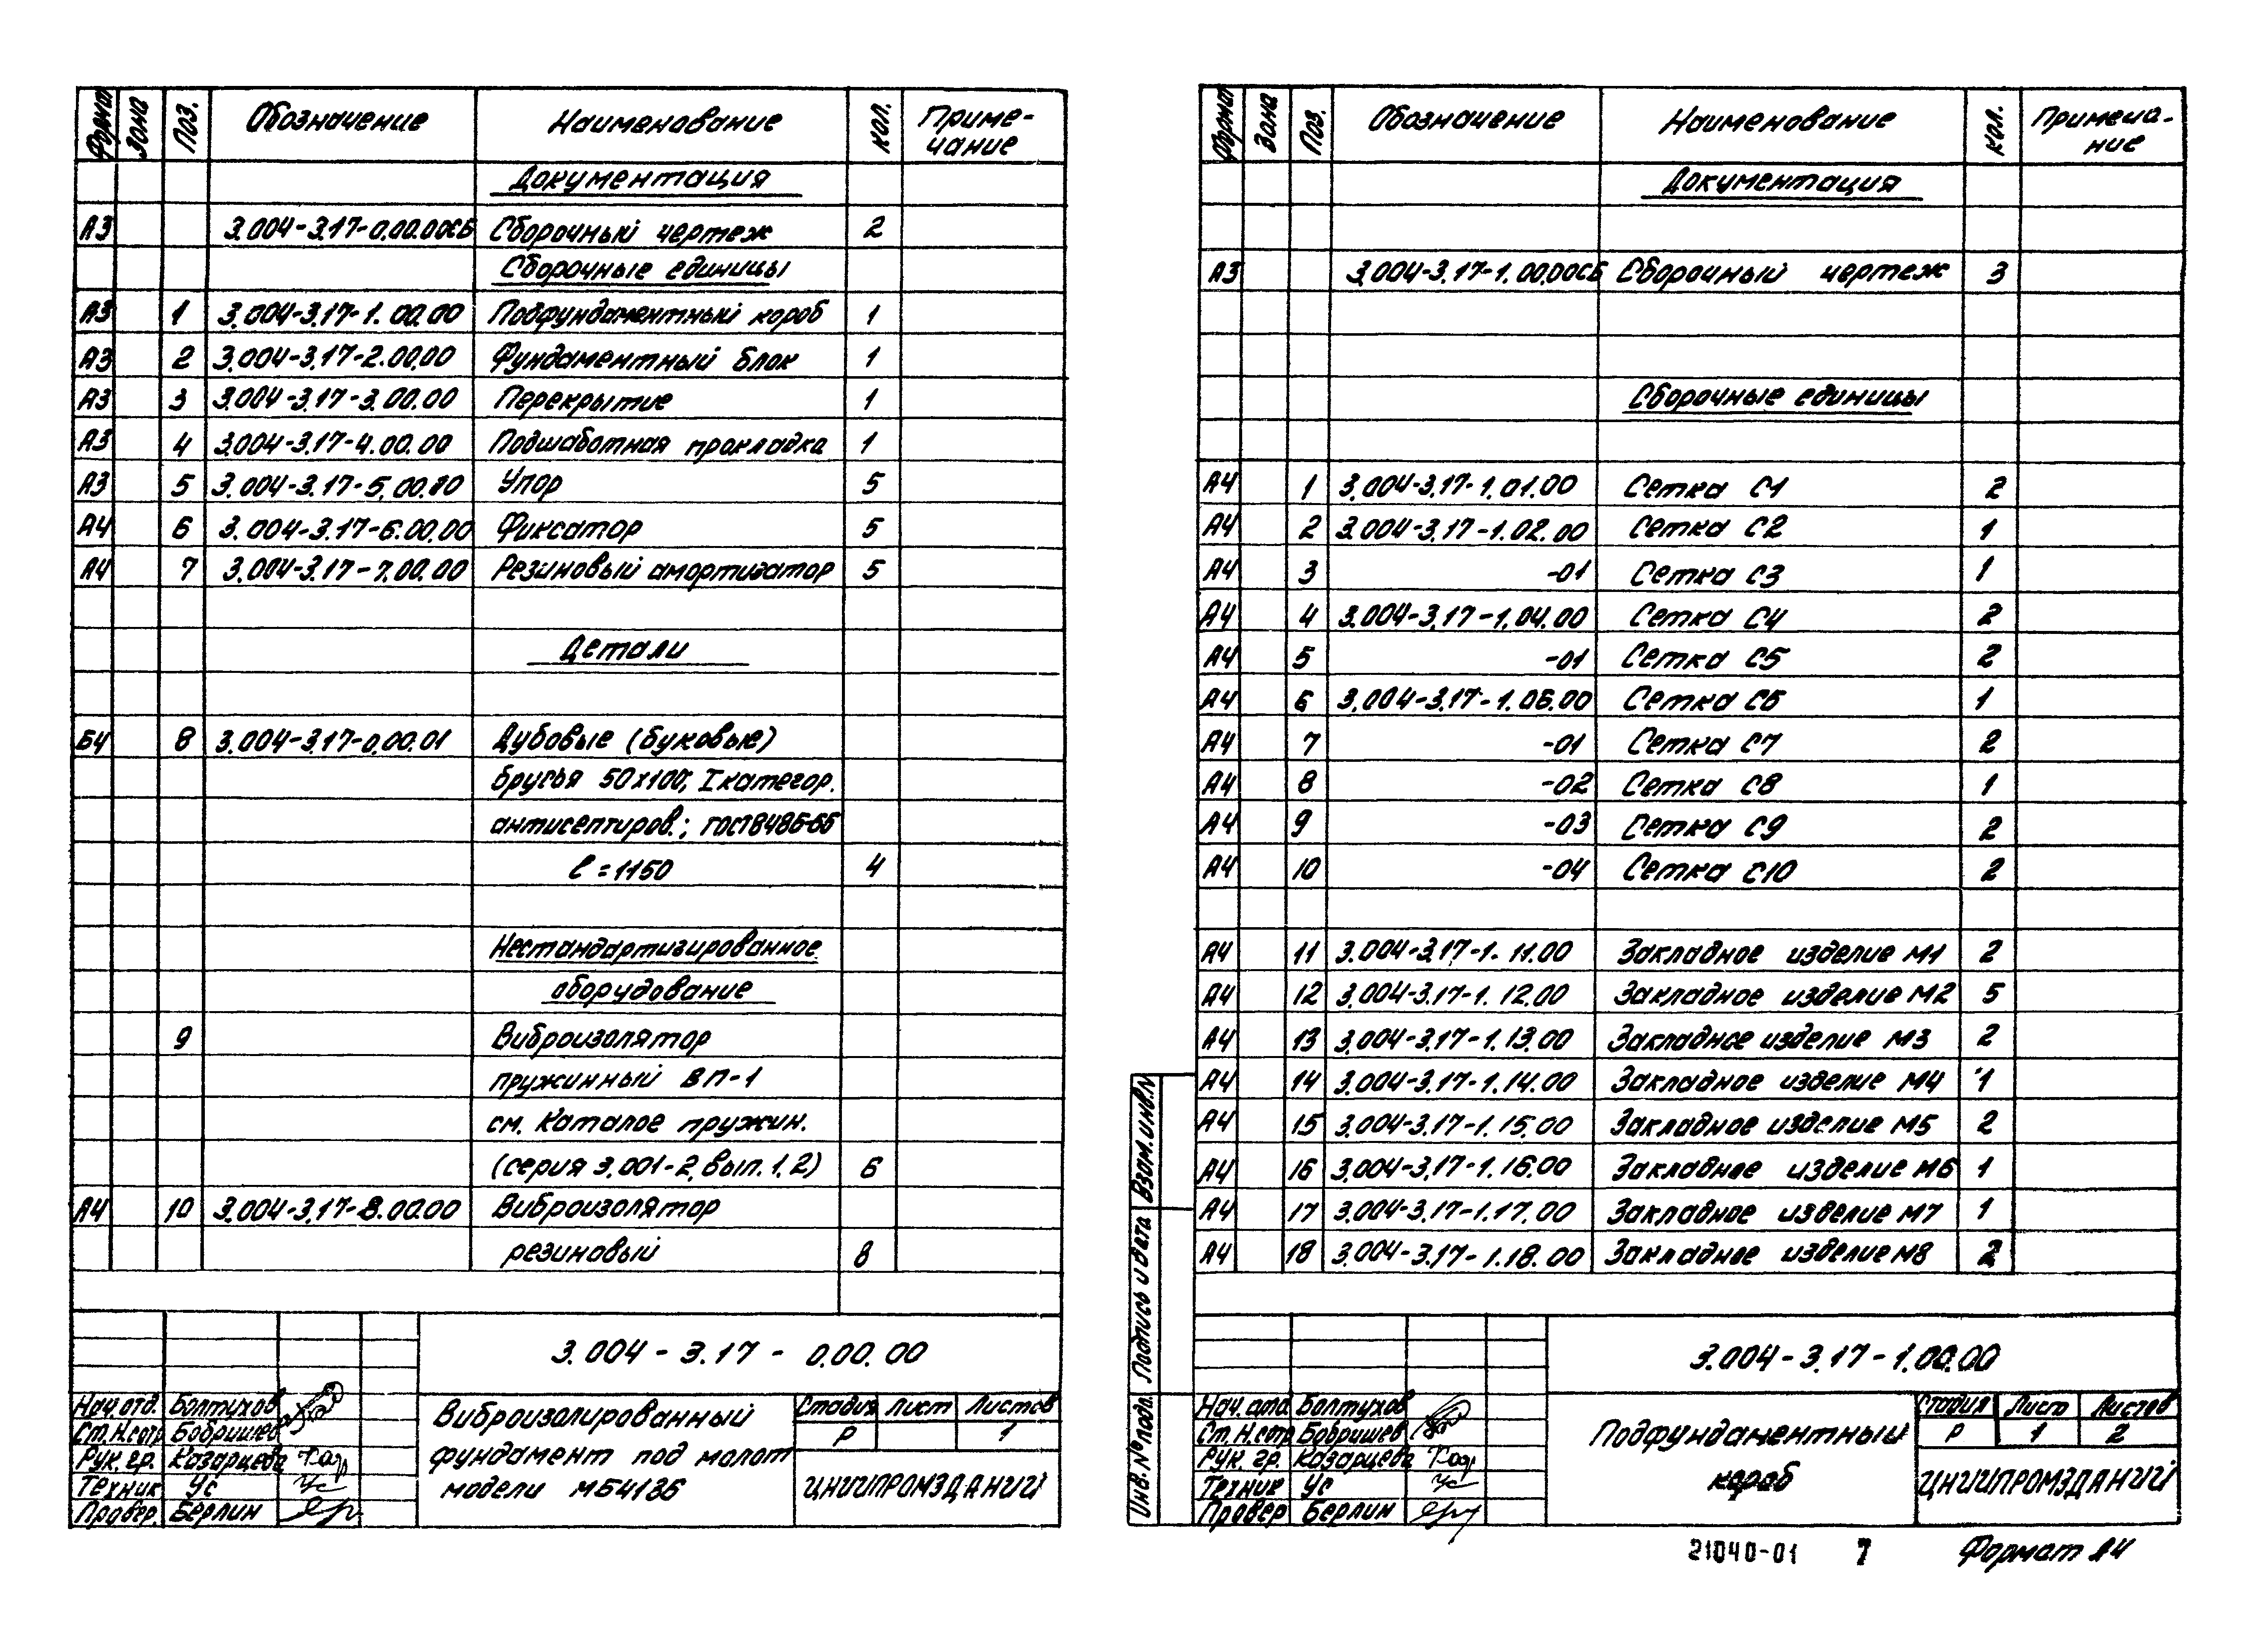 Формат Зона Поз. Обозначение Наименование Кол. Приме-
чание
Документация
А3 3.004-3.17-0.00.00СБ Сборочный чертеж 2
Сборочные единицы
А3 1 3.004-3.17-1.00.00 Подфундаментный короб 1
А3 2 3.004-3.17-2.00.00 Фундаментный блок 1
А3 3 3.004-3.17-3.00.00 Перекрытие 1
А3 4 3.004-3.17-4.00.00 Подшаботная прокладка 1
А3 5 3.004-3.17-5.00.00 Упор 5
А4 6 3.004-3.17-6.00.00 Фиксатор 5
А4 7 3.004-3.17-7.00.00 Резиновый амортизатор 5
Детали
Б4 8 3.004-3.17-0.00.01 Дубовые (буковые)
брусья 50х100, I категор.
антисептиров.; ГОСТ 8486-66
ℓ=1150 4
Нестандартизированное
оборудование
9 Виброизолятор
пружинный ВП-1
см. Каталог пружин.
(серия 3.001-2, вып. 1, 2) 6
А4 10 3.004-3.17-8.00.00 Виброизолятор
резиновый 8
3.004-3.17-0.00.00
Нач. отд. Болтухов
Ст. Н. сотр. Бобришев
Рук. гр. Казарцева
Техник Ус
Провер. Берлин
Виброизолированный
фундамент под молот
модели МБ4136
Стадия Лист Листов
Р 1
ЦНИИПРОМЗДАНИЙ
Формат Зона Поз. Обозначение Наименование Кол. Примеча-
ние
Документация
А3 3.004-3.17-1.00.00СБ Сборочный чертеж 3
Сборочные единицы
А4 1 3.004-3.17-1.01.00 Сетка С1 2
А4 2 3.004-3.17-1.02.00 Сетка С2 1
А4 3 -01 Сетка С3 1
А4 4 3.004-3.17-1.04.00 Сетка С4 2
А4 5 -01 Сетка С5 2
А4 6 3.004-3.17-1.06.00 Сетка С6 1
А4 7 -01 Сетка С7 2
А4 8 -02 Сетка С8 1
А4 9 -03 Сетка С9 2
А4 10 -04 Сетка С10 2
А4 11 3.004-3.17-1.11.00 Закладное изделие М1 2
А4 12 3.004-3.17-1.12.00 Закладное изделие М2 5
А4 13 3.004-3.17-1.13.00 Закладное изделие М3 2
А4 14 3.004-3.17-1.14.00 Закладное изделие М4 1
А4 15 3.004-3.17-1.15.00 Закладное изделие М5 2
А4 16 3.004-3.17-1.16.00 Закладное изделие М6 1
А4 17 3.004-3.17-1.17.00 Закладное изделие М7 1
А4 18 3.004-3.17-1.18.00 Закладное изделие М8 2
Взам. инв. N
Подпись и дата
Инв. № подл.
3.004-3.17-1.00.00
Нач. отд. Болтухов
Ст. Н. сотр. Бобришев
Рук. гр. Казарцева
Техник Ус
Провер Берлин
Подфундаментный
короб
Стадия Лист Листов
Р 1 2
ЦНИИПРОМЗДАНИЙ
21040-01 7 Формат А4